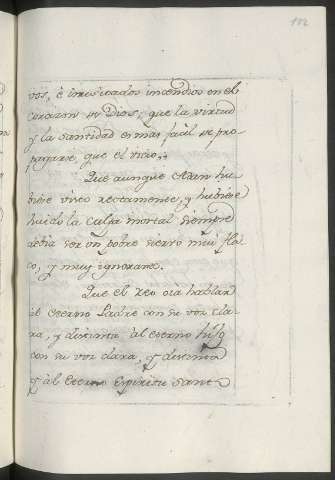 102
vos, è intrincados incendios en el
corazon de Dios; que la virtud
y la santidad es mas facil de pro-
pagarse, que el vicio.
Que aunque Adan hu-
biese vivido rectamente, y hubiese
huido la culpa mortal siempre
debia ser un pobre siervo mui fla-
co, y muy ignorante.
Que el reo oia hablar
al eterno Padre con su voz cla-
ra, y distinta al eterno hijo
con su voz clara, y distinta
y al eterno Espiritu Sant